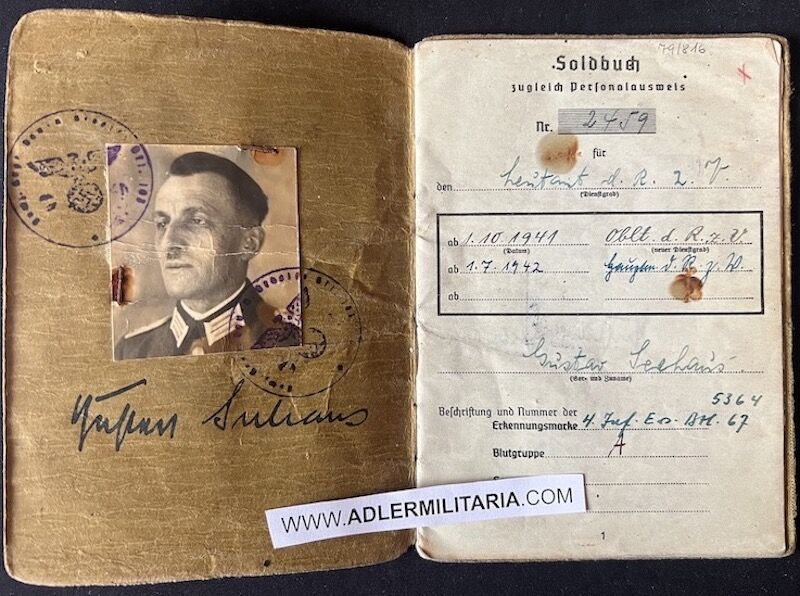 Gustav Seehaus
WWW.ADLERMILITARIA.COM
79/816
Soldbuch
zugleich Personalausweis
Nr. 2459
für
den Leutnant d. R. z. V.
(Dienstgrad)
ab 1.10.1941 Oblt. d. R. z. V.
(Datum) (neuer Dienstgrad)
ab 1.7.1942 d. R. z. V.
ab
Gustav Seehaus.
(Vor- und Zuname)
5364
Beschriftung und Nummer der
Erkennungsmarke 4. Inf. Ers. Btl. 67
Blutgruppe A
1